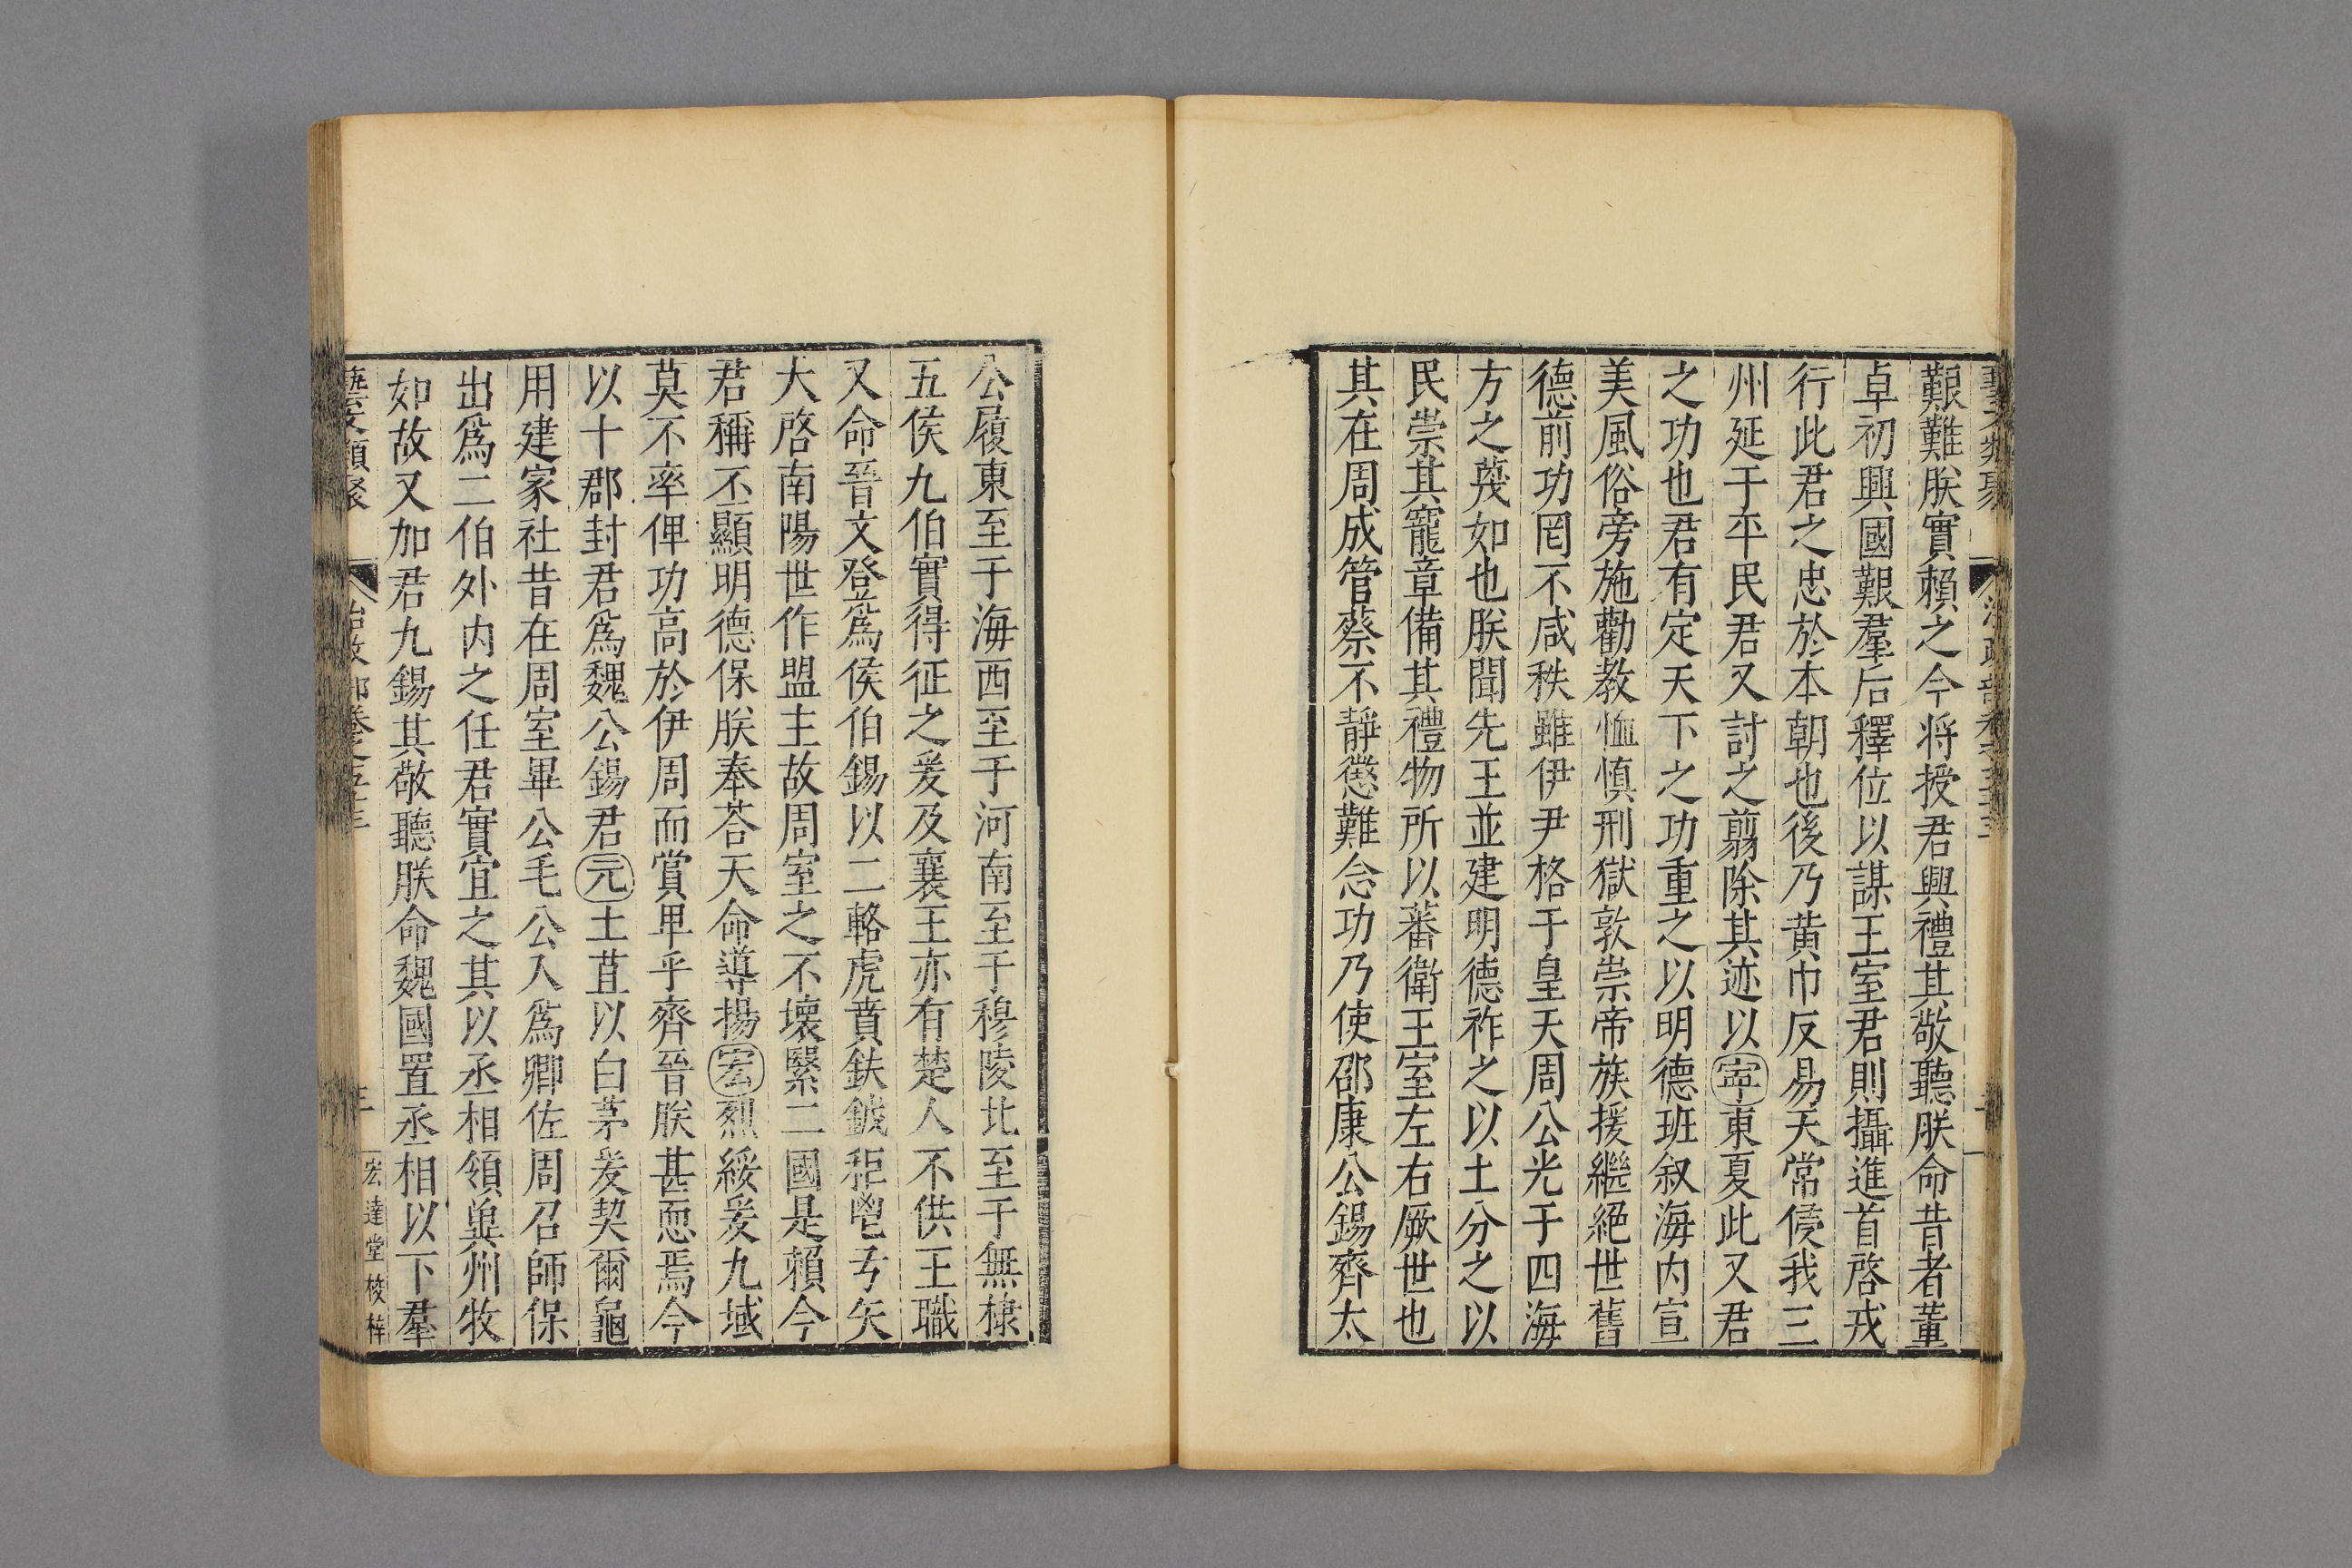 艱難朕實賴之今将授君興禮其敬聽朕命昔者董
卓初興國艱羣后釋位以謀王室君則攝進首啓戎
行此君之忠於本朝也後乃黄巾反易天常侵我三
州延于平民君又討之翦除其迹以寕東夏此又君
之功也君有定天下之功重之以明德班叙海内宣
美風俗旁施勸教恤慎刑獄敦崇帝族援繼絕世舊
德前功罔不咸秩雖伊尹格于皇天周公光于四海
方之蔑如也朕聞先王並建明德祚之以土分之以
民崇其寵章備其禮物所以蕃衛王室左右厥世也
其在周成管蔡不靜懲難念功乃使邵康公錫齊太
公履東至于海西至于河南至于穆陵北至于無棣
五侯九伯實得征之爰及襄王亦有楚人不供王職
又命晉文登爲侯伯錫以二輅虎賁鈇鉞秬鬯弓矢
大啓南陽世作盟主故周室之不壊繄二國是賴今
君稱丕顯明德保朕奉荅天命導揚宏烈綏爰九域
莫不率俾功高於伊周而賞卑乎齊晉朕甚恧焉今
以十郡封君爲魏公錫君元土苴以白茅爰契爾龜
用建家社昔在周室畢公毛公入爲卿佐周召師保
出爲二伯外内之任君實宜之其以丞相領兾州牧
如故又加君九錫其敬聽朕命魏國置丞相以下羣
藝文類聚 治政部卷之五十三 三 宏達堂校梓